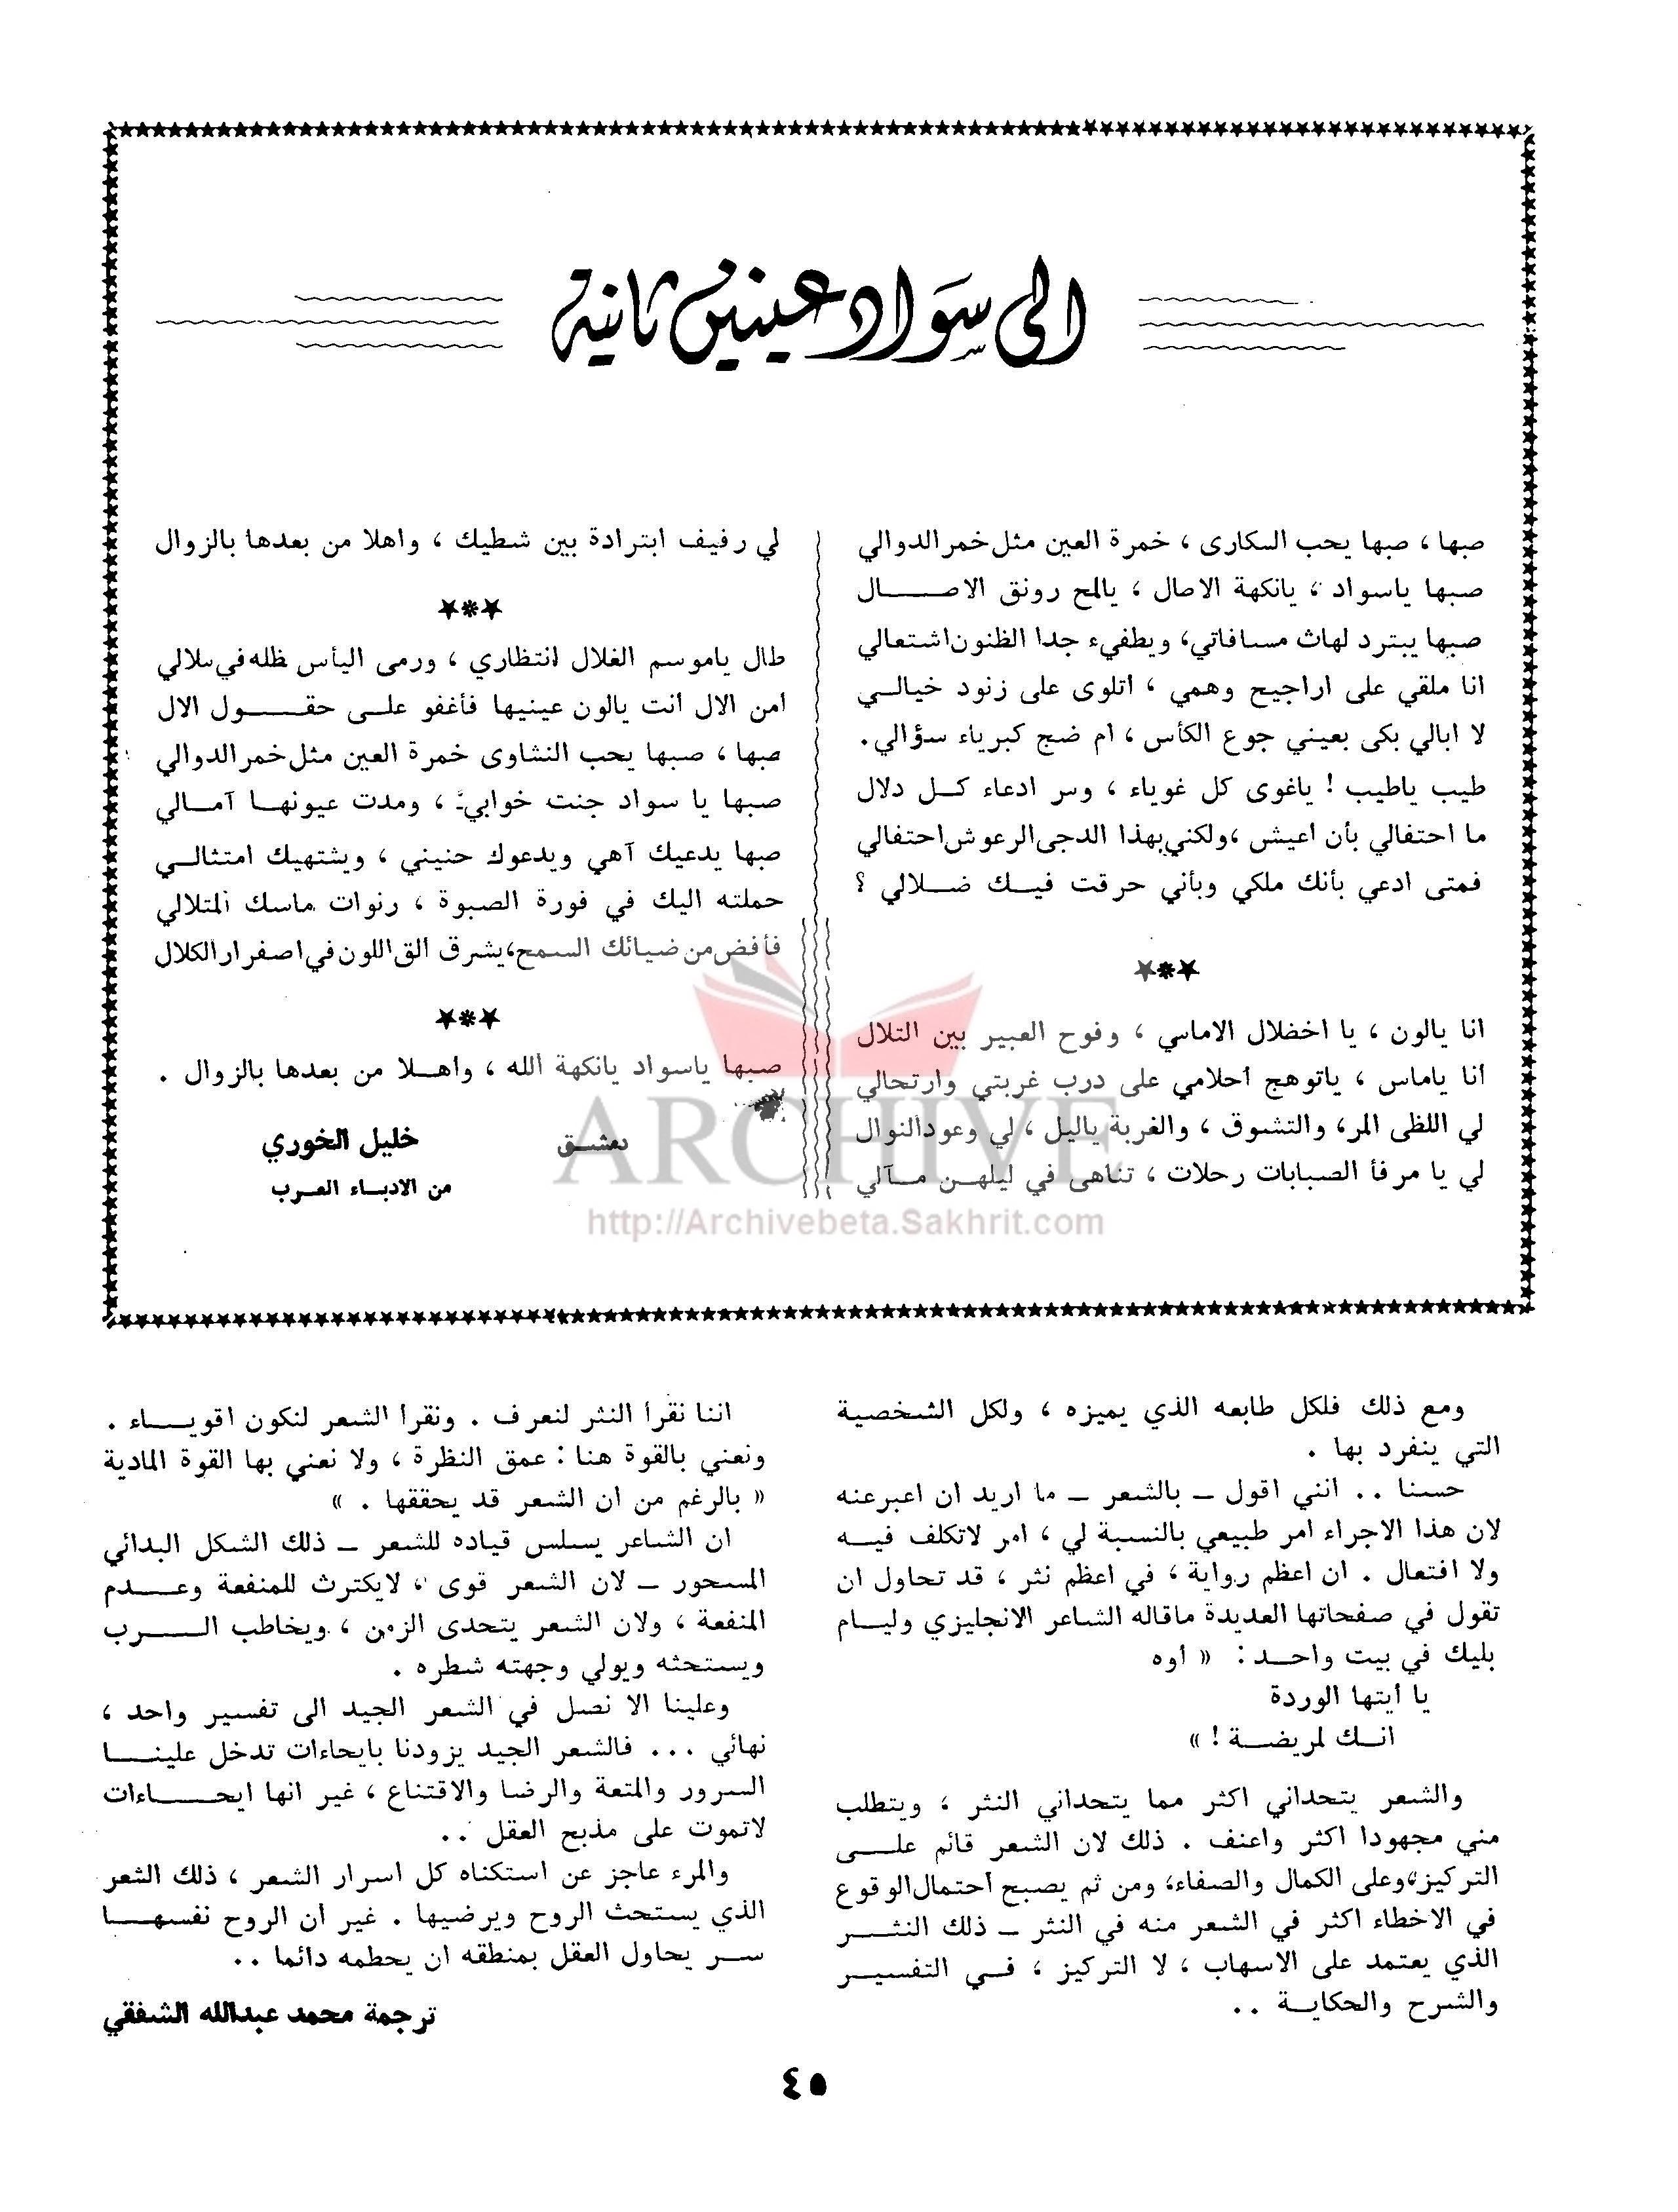 الى سواد عينين ثانية
صبها ، صبها يحب السكارى ، خمرة العين مثل خمر الدوالي
صبها ياسواد ، يانكهة الاصال ، يالمح رونق الاصـــــال
صبها يبترد لهاث مسافاتي، ويطفيء جدا الظنون اشتعالي
انا ملقي على اراجيح وهمي ، أتلوى على زنود خيالـــي
لا ابالي بكى بعيني جوع الكأس ، ام ضج كبرياء سؤالي.
طيب ياطيب ! ياغوى كل غوياء ، وسر ادعاء كـــل دلال
ما احتفالي بأن اعيش ،ولكني بهذا الدجى الرعوش احتفالي
فمتى ادعي بأنك ملكي وبأني حرقت فيـــك ضــلالي ؟
★*★
انا يالون ، يا اخضلال الاماسي ، وفوح العبير بين التلال
أنا ياماس ، ياتوهج أحلامي على درب غربتي وارتحالي
لي اللظى المر، والتشوق ، والغربة ياليل ، لي وعود النوال
لي يا مرفأ الصبابات رحلات ، تناهى في ليلهـــن مــآلي
لي رفيف ابترادة بين شطيك ، واهلا من بعدها بالزوال
★*★
طال ياموسم الغلال انتظاري ، ورمى اليأس ظله في سلالي
أمن الال أنت يالون عينيها فأغفو علـــى حقـــول الال
صبها ، صبها يحب النشاوى خمرة العين مثل خمر الدوالي
صبها يا سواد جنت خوابيّ ، ومدت عيونهـــا آمـــالي
صبها يدعيك آهي ويدعوك حنيني ، ويشتهيك امتثالـــي
حملته اليك في فورة الصبوة ، رنوات ماسك المتلالي
فأفض من ضيائك السمح،يشرق الق اللون في اصفرار الكلال
★*★
صبها ياسواد يانكهة الله ، واهـــلا من بعدها بالزوال .
دمشـــق
خليل الخوري
من الادبـــاء العـــرب
ARCHIVE
http://Archivebeta.Sakhrit.com
ومع ذلك فلكل طابعه الذي يميزه ، ولكل الشخصية
التي ينفرد بها .
حسنا .. انني اقول ـ بالشعر ـ ما اريد ان اعبر عنه
لان هذا الاجراء امر طبيعي بالنسبة لي ، امر لاتكلف فيـــه
ولا افتعال . ان اعظم رواية ، في اعظم نثر ، قد تحاول ان
تقول في صفحاتها العديدة ماقاله الشاعر الانجليزي وليـــام
بليك في بيت واحـــد : « أوه
يا أيتها الوردة
انـــك لمريضـــة ! »
والشعر يتحداني اكثر مما يتحداني النثر ، ويتطلب
مني مجهودا اكثر واعنف . ذلك لان الشعر قائم علـــى
التركيز،وعلى الكمال والصفاء، ومن ثم يصبح أحتمال الوقوع
في الاخطاء اكثر في الشعر منه في النثر ـ ذلك النثـــر
الذي يعتمد على الاسهاب ، لا التركيز ، فـــي التفسيـــر
والشرح والحكايـــة ..
اننا نقرأ النثر لنعرف . ونقرأ الشعر لنكون اقويـــاء .
ونعني بالقوة هنا : عمق النظرة ، ولا نعني بها القوة المادية
« بالرغم من ان الشعر قد يحققها . »
ان الشاعر يسلس قياده للشعر ـ ذلك الشكل البدائي
المسحور ـ لان الشعر قوى ، لايكترث للمنفعة وعـــدم
المنفعة ، ولان الشعر يتحدى الزمن ، ويخاطب الـــرب
ويستحثه ويولي وجهته شطره .
وعلينا الا نصل في الشعر الجيد الى تفسير واحد ،
نهائي ... فالشعر الجيد يزودنا بايحاءات تدخل علينـــا
السرور والمتعة والرضا والاقتناع ، غير انها ايحـــاءات
لاتموت على مذبح العقل ..
والمرء عاجز عن استكناه كل اسرار الشعر ، ذلك الشعر
الذي يستحث الروح ويرضيها . غير ان الروح نفسهـــا
ســر يحاول العقل بمنطقه ان يحطمه دائما ..
ترجمة محمد عبدالله الشفقي
٤٥